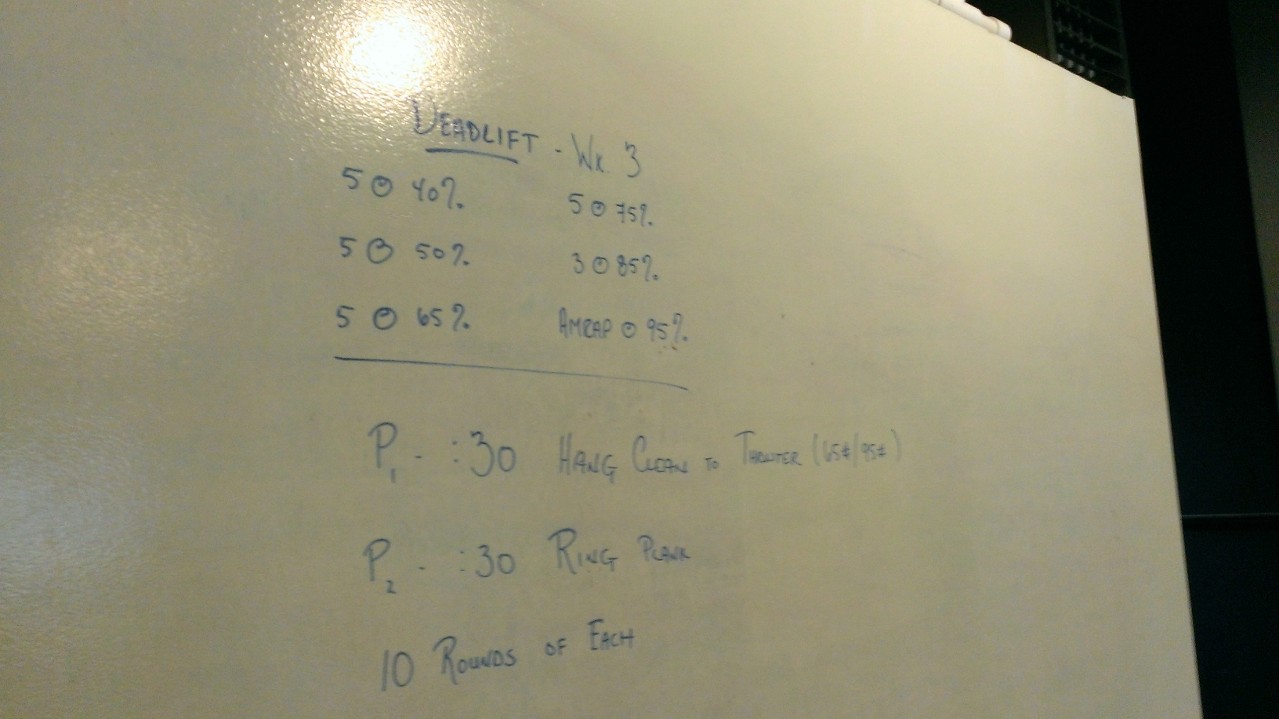 DEADLIFT - WK. 3
5 @ 40%
5 @ 50%
5 @ 65%
5 @ 75%
3 @ 85%
AMRAP @ 95%
P1 - :30 HANG CLEAN TO THRUSTER (65#/95#)
P2 - :30 RING PLANK
10 ROUNDS OF EACH